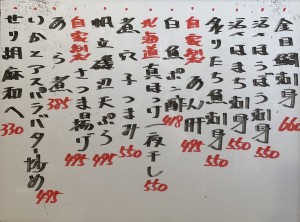 金目鯛刺身 660
活ほうぼう刺身 550
活さより刺身 550
炙りたち魚刺身 550
自家製あん肝 495
白魚ポン酢 418
北海道真ほっけ一夜干し 550
煮穴子つまみ 550
帆立磯辺天ぷら 495
自家製さつま揚げ 495
あら煮 385
いかとアスパラバター炒め 495
せり胡麻和へ 330